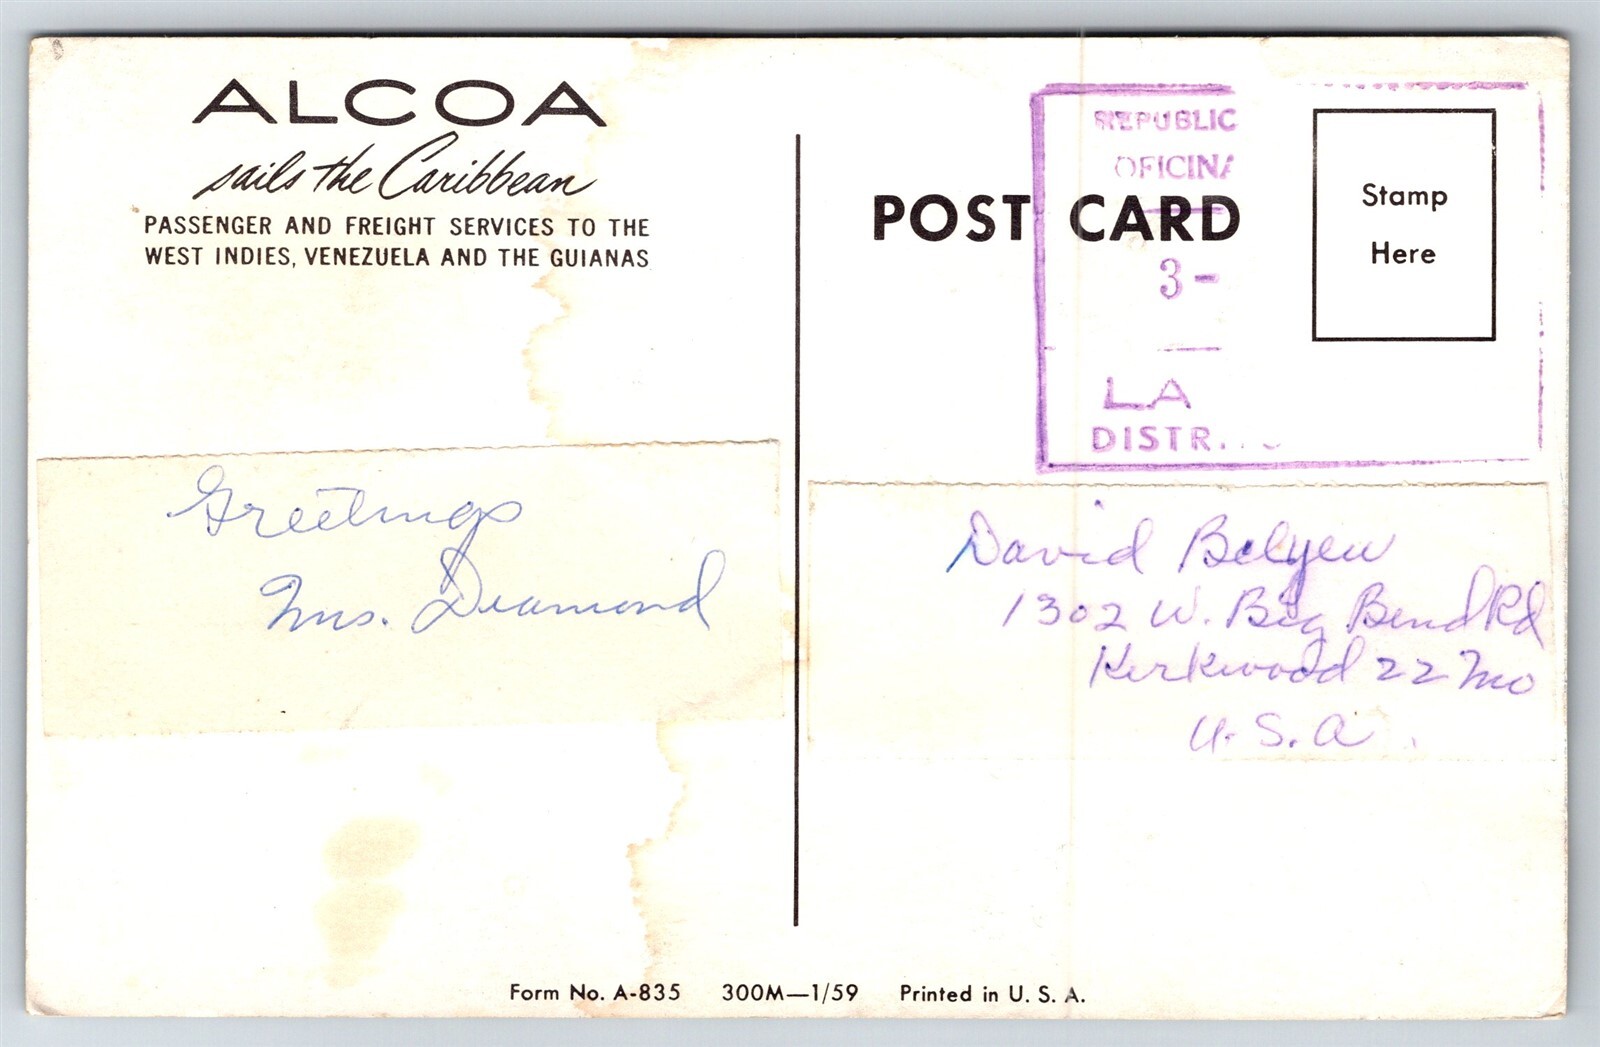 ALCOA
sails the Caribbean
PASSENGER AND FREIGHT SERVICES TO THE
WEST INDIES, VENEZUELA AND THE GUIANAS
POST CARD
REPUBLIC
OFICINA
3-
LA
DISTR.
Stamp
Here
Greetings
Mrs. Diamond
David Belyew
1302 W. Big Bend Rd
Kirkwood 22 Mo
U.S.A.
Form No. A-835 300M—1/59 Printed in U. S. A.